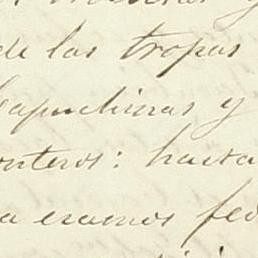 de las tropas
Capuchinas y
onteros: hasta
a eramos fed